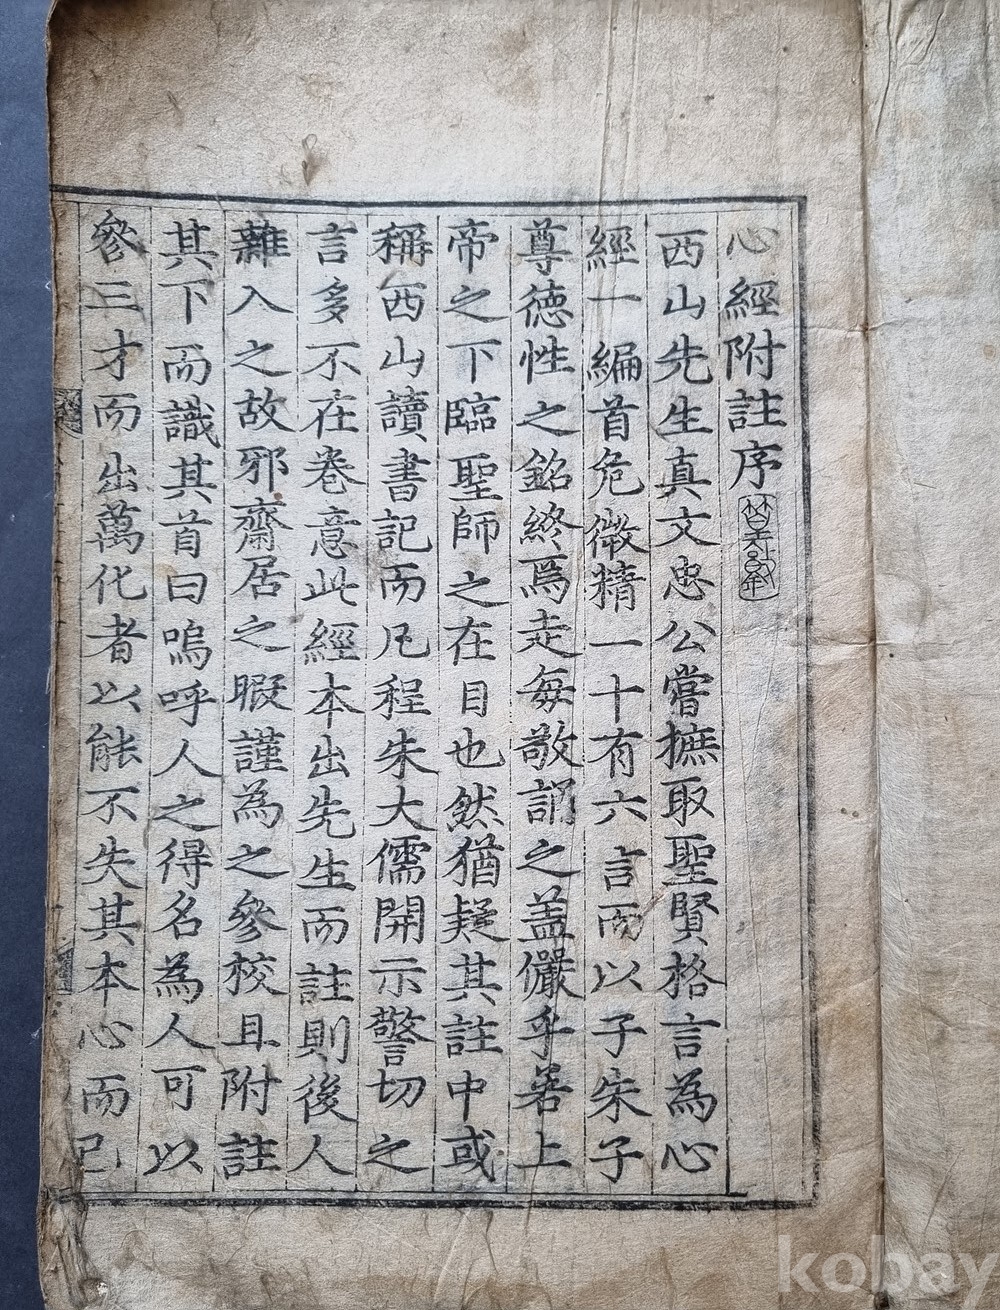 心經附註序
西山先生真文忠公嘗摭取聖賢格言為心
經一編首危微精一十有六言而以子朱子
尊德性之銘終焉走每敬誦之盖儼乎若上
帝之下臨聖師之在目也然猶疑其註中或
稱西山讀書記而凡程朱大儒開示警切之
言多不在卷意此經本出先生而註則後人
雜入之故邪齋居之暇謹為之參校且附註
其下而識其首曰嗚呼人之得名為人可以
參三才而出萬化者以能不失其本心而已
kobay